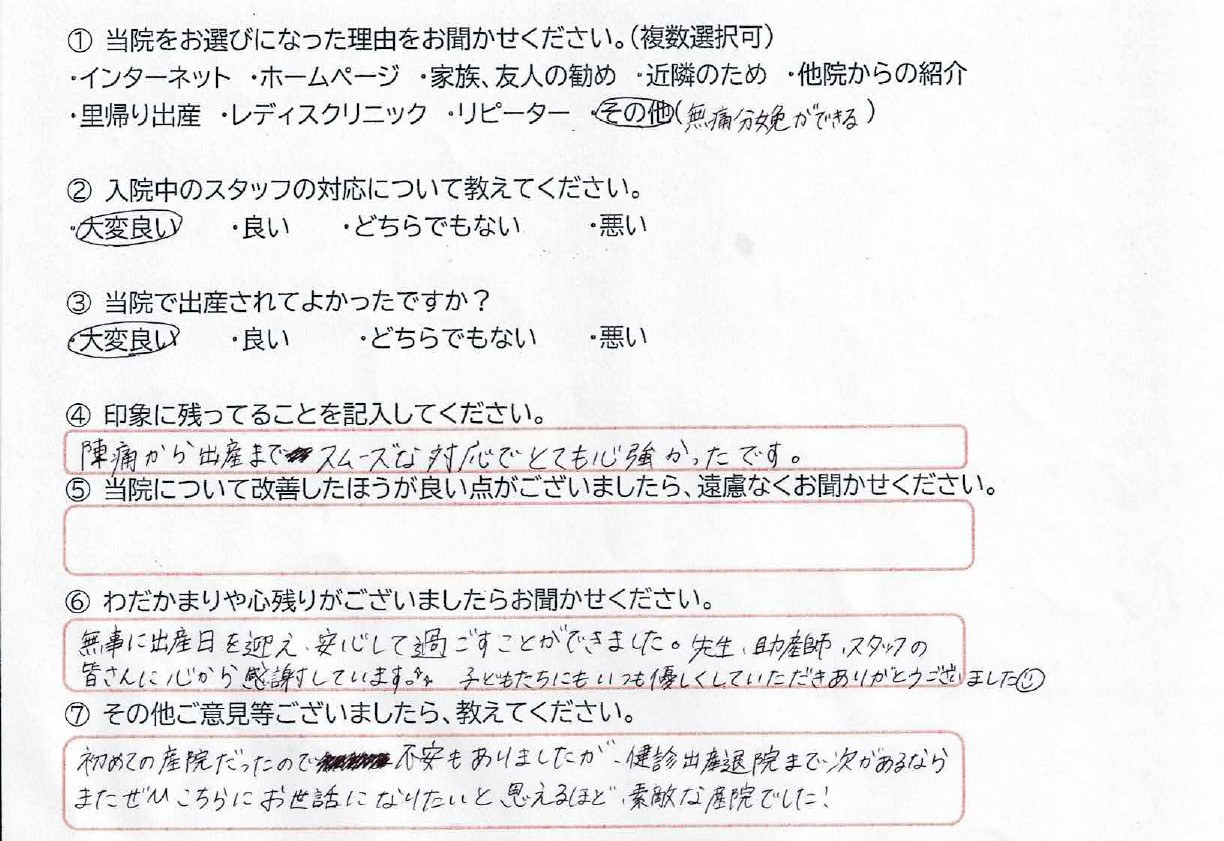 ① 当院をお選びになった理由をお聞かせください。(複数選択可)
・インターネット ・ホームページ ・家族、友人の勧め ・近隣のため ・他院からの紹介
・里帰り出産 ・レディスクリニック ・リピーター ・その他(無痛分娩ができる)
② 入院中のスタッフの対応について教えてください。
・大変良い ・良い ・どちらでもない ・悪い
③ 当院で出産されてよかったですか？
・大変良い ・良い ・どちらでもない ・悪い
④ 印象に残ってることを記入してください。
陣痛から出産までスムーズな対応でとても心強かったです。
⑤ 当院について改善したほうが良い点がございましたら、遠慮なくお聞かせください。
⑥ わだかまりや心残りがございましたらお聞かせください。
無事に出産日を迎え、安心して過ごすことができました。先生、助産師、スタッフの
皆さんに心から感謝しています。子どもたちにもいつも優しくしていただきありがとうございました
⑦ その他ご意見等ございましたら、教えてください。
初めての産院だったので不安もありましたが、健診出産退院まで次があるなら
またぜひこちらにお世話になりたいと思えるほど、素敵な産院でした！